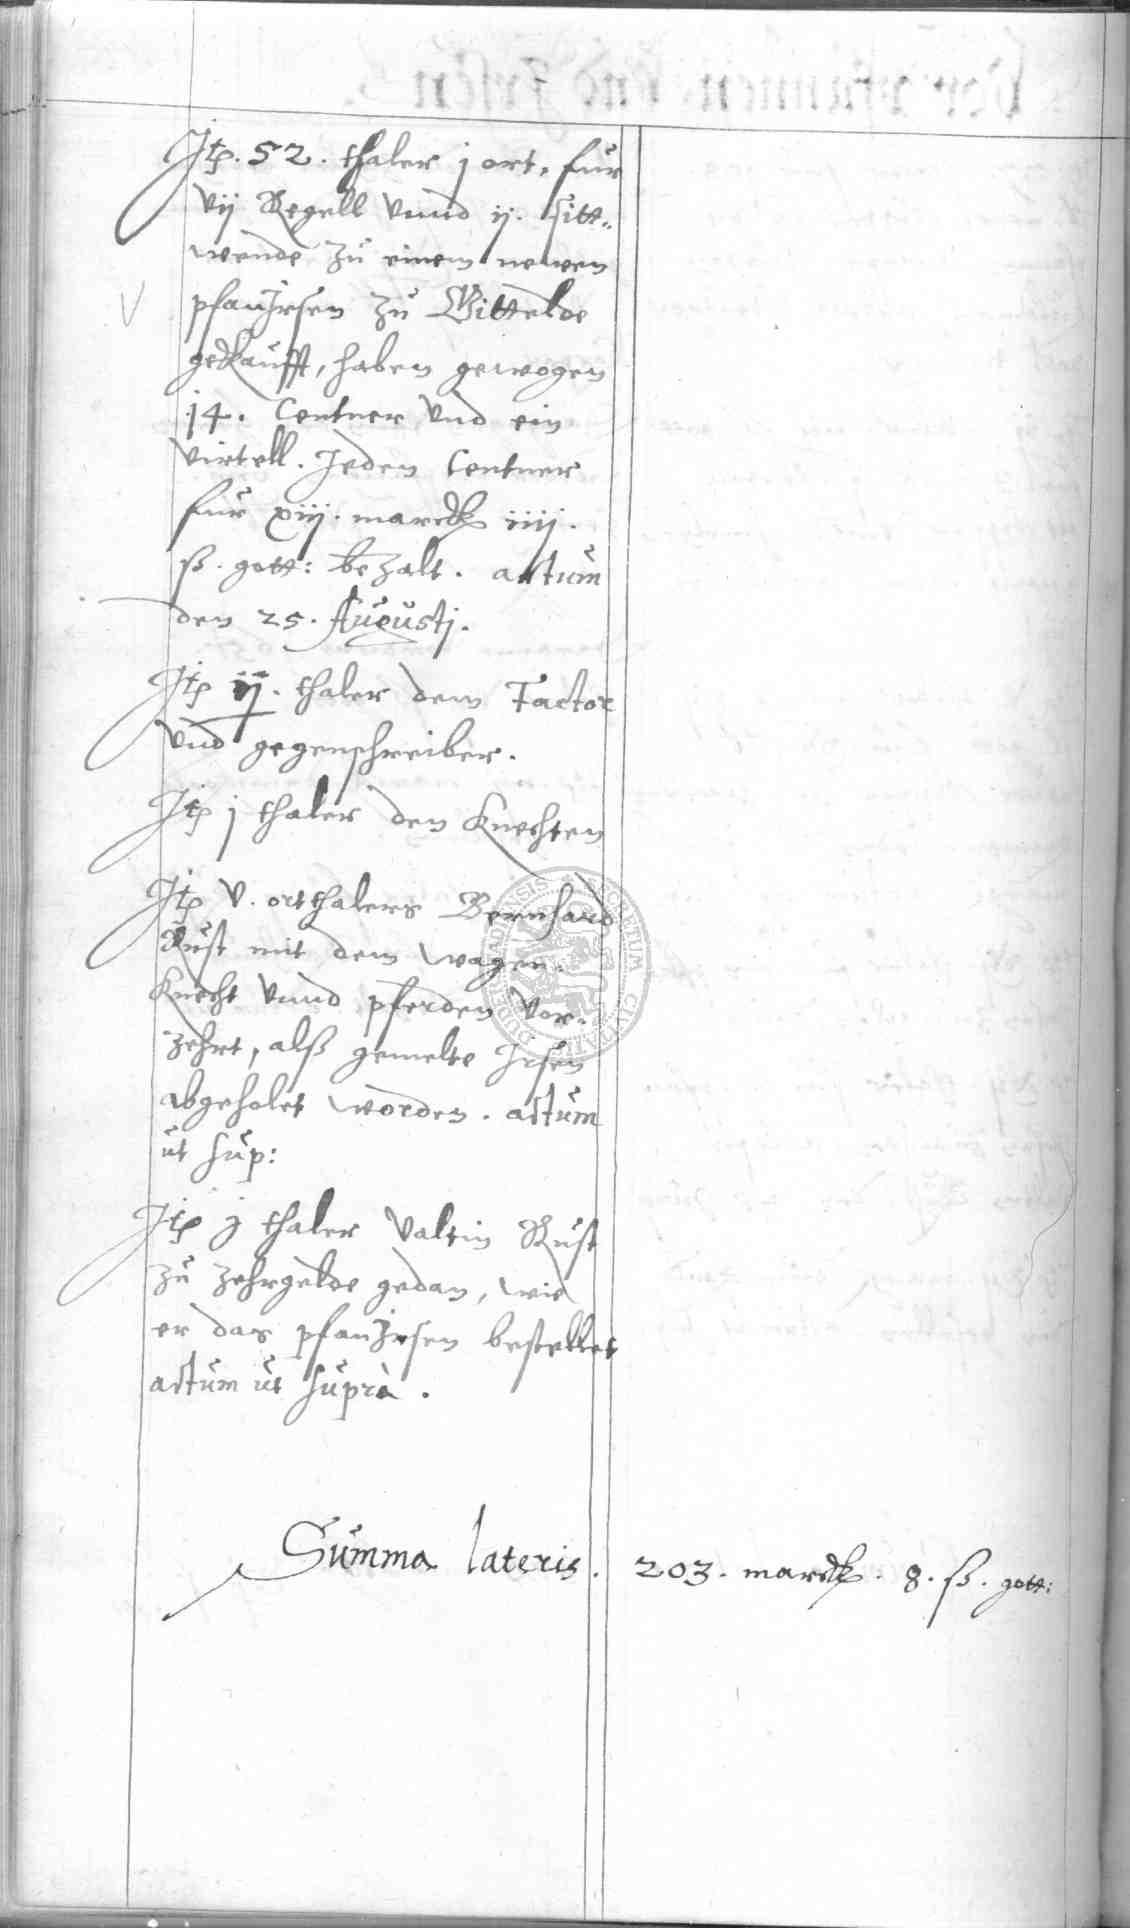 Itp. 52. thaler j ort, fur
vij Regell vnnd ij. sitt„
wende zu einem newen
pfanIrsen zu Gittelde
gekaufft, haben gewogen
14. Centner vnd ein
virtell. Jeden Centner
fur xiij. marck iiij.
ß. gott: bezalt. actum
den 25. Augustj.
Itp ij. thaler dem Factor
vnd gegenschreiber.
Itp j thaler den Knechten
Itp v. ortthalers Bernhard
Rust mit dem wagen.
Knecht vnnd pferden vor„
zehrt, alß gemelte Irsen
abgeholet worden. actum
ut sup:
Itp j thaler Valtin Rust
zu zehrgelde gedan, wie
er das pfanIrsen bestellet
actum ut suprà.
Summa lateris. 203. marck. 8. ß. gott: